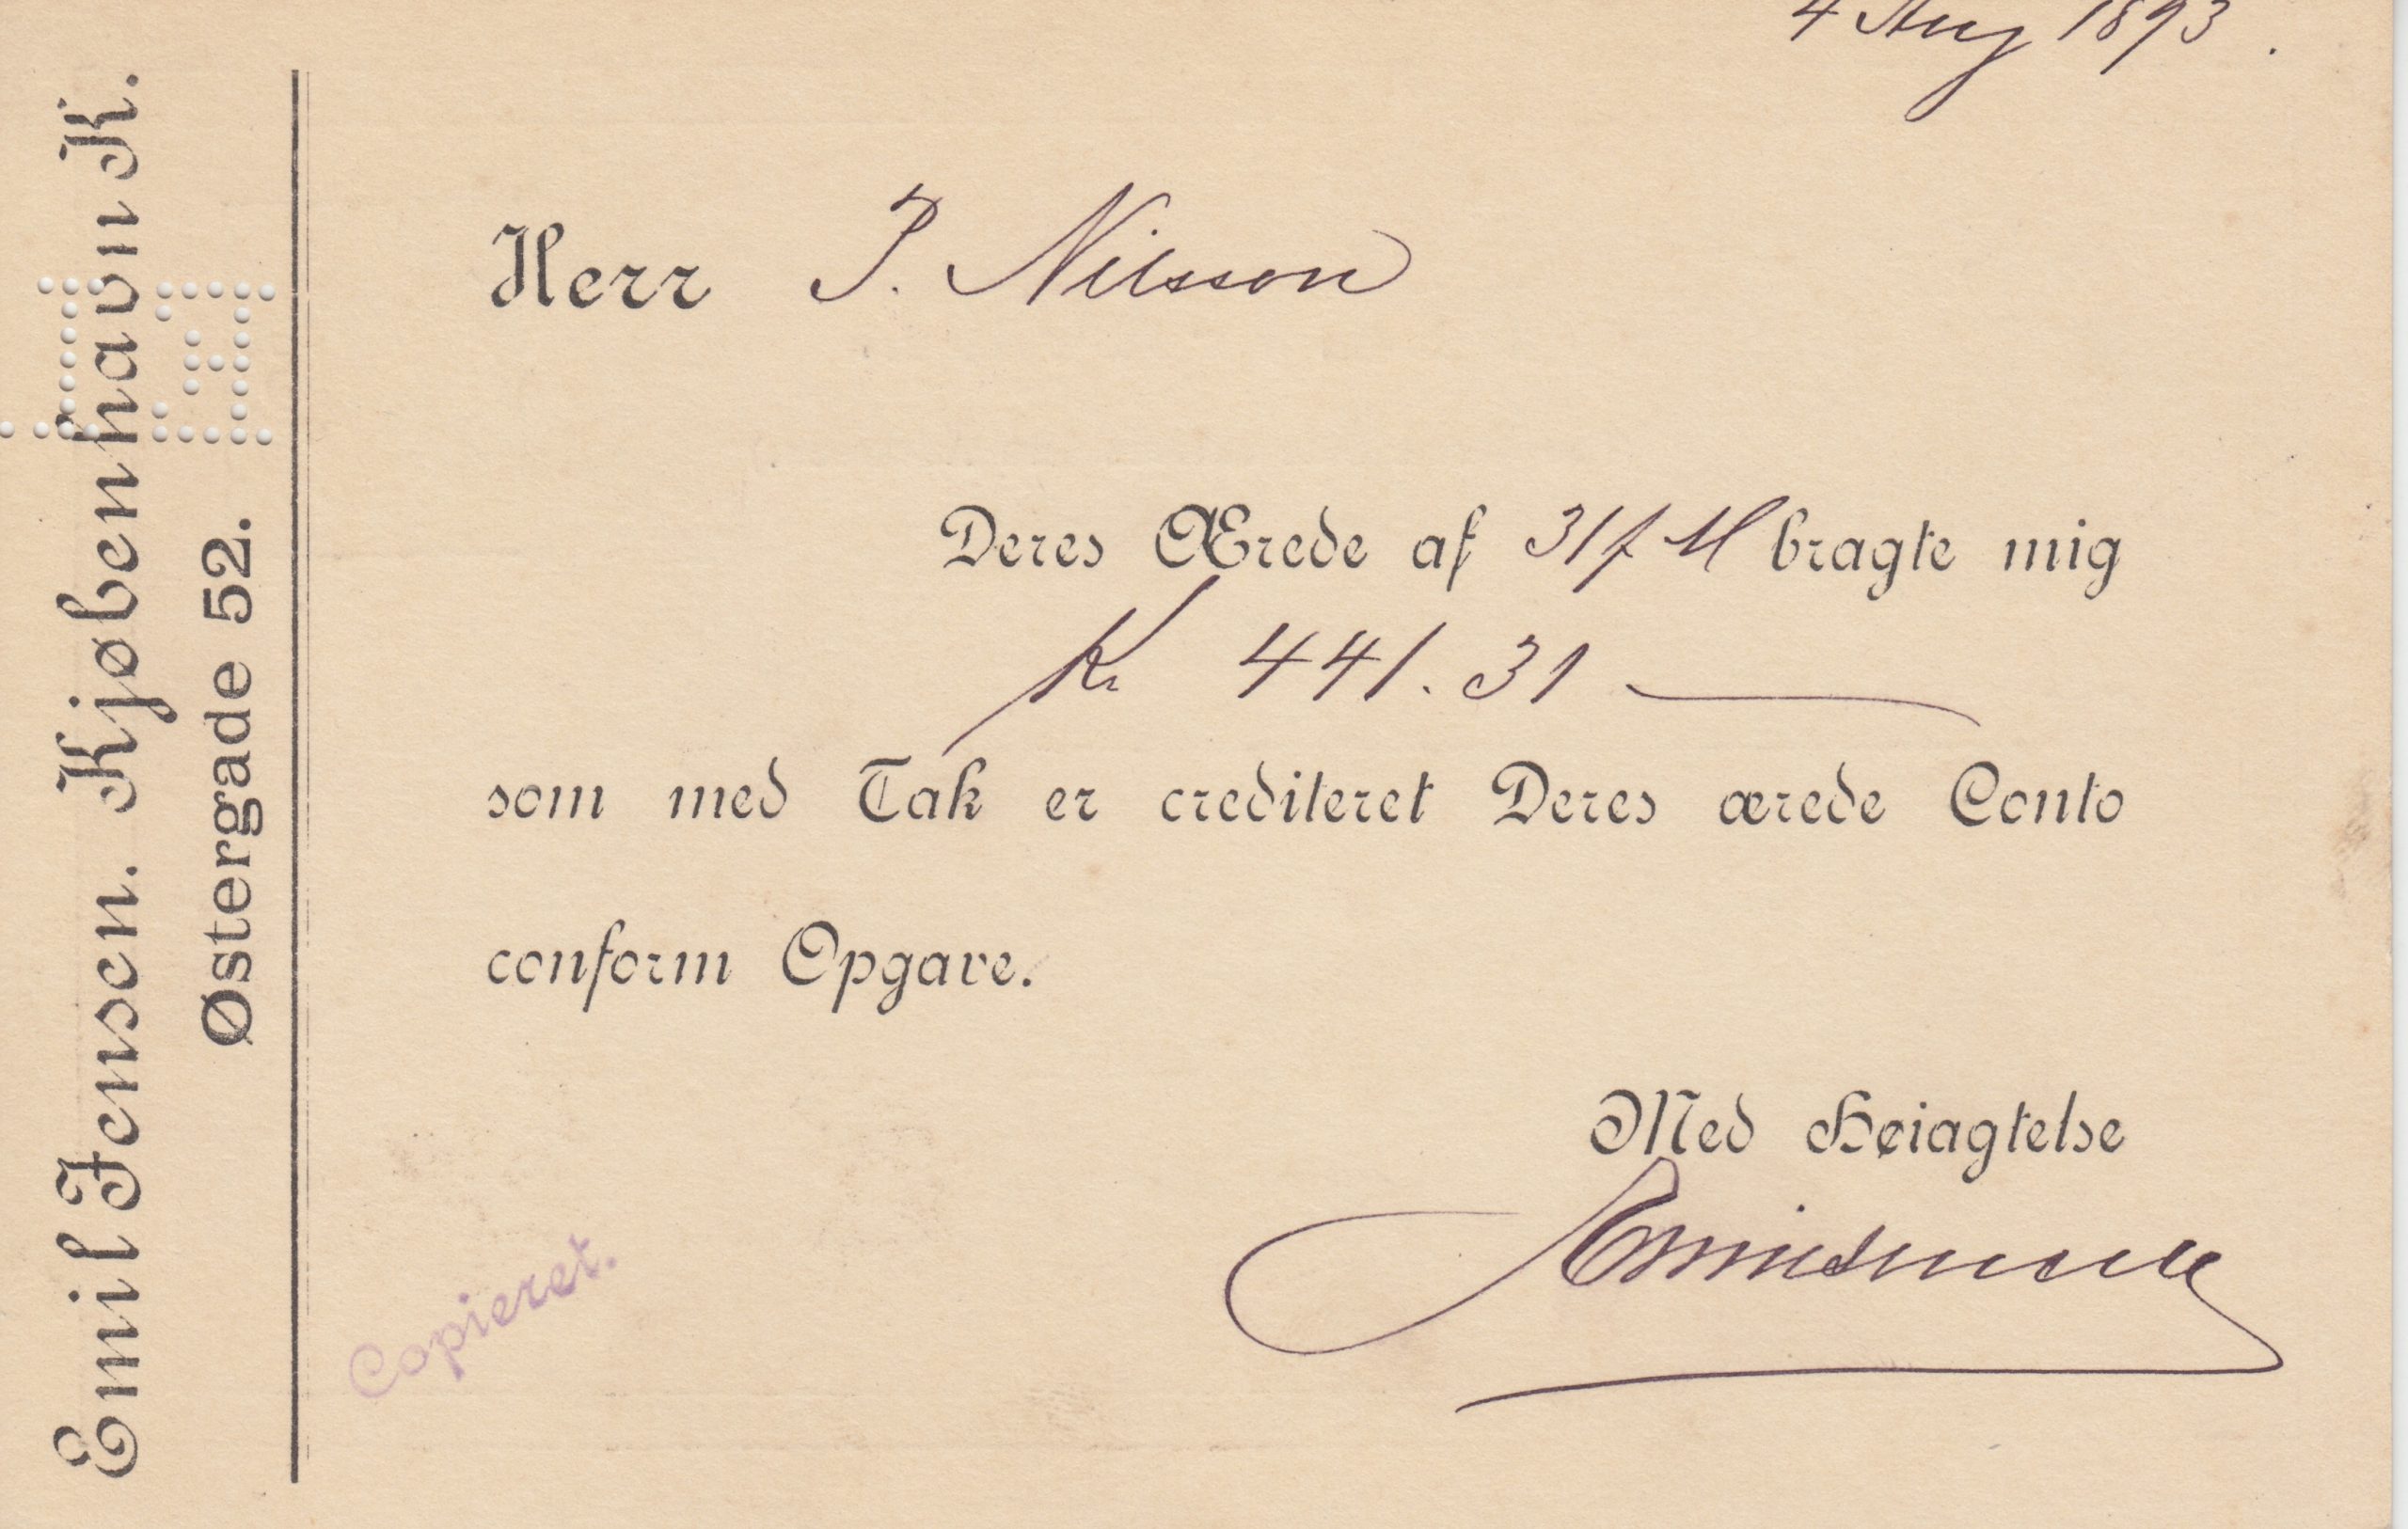 4 Aug 1893.
Emil Jensen. Kjøbenhavn K.
Østergade 52.
Herr P. Nilsson
Deres Ærede af 31/ M bragte mig
Kr 441.31
som med Tak er crediteret Deres ærede Conto
conform Opgave.
Med Høiagtelse
Copieret.